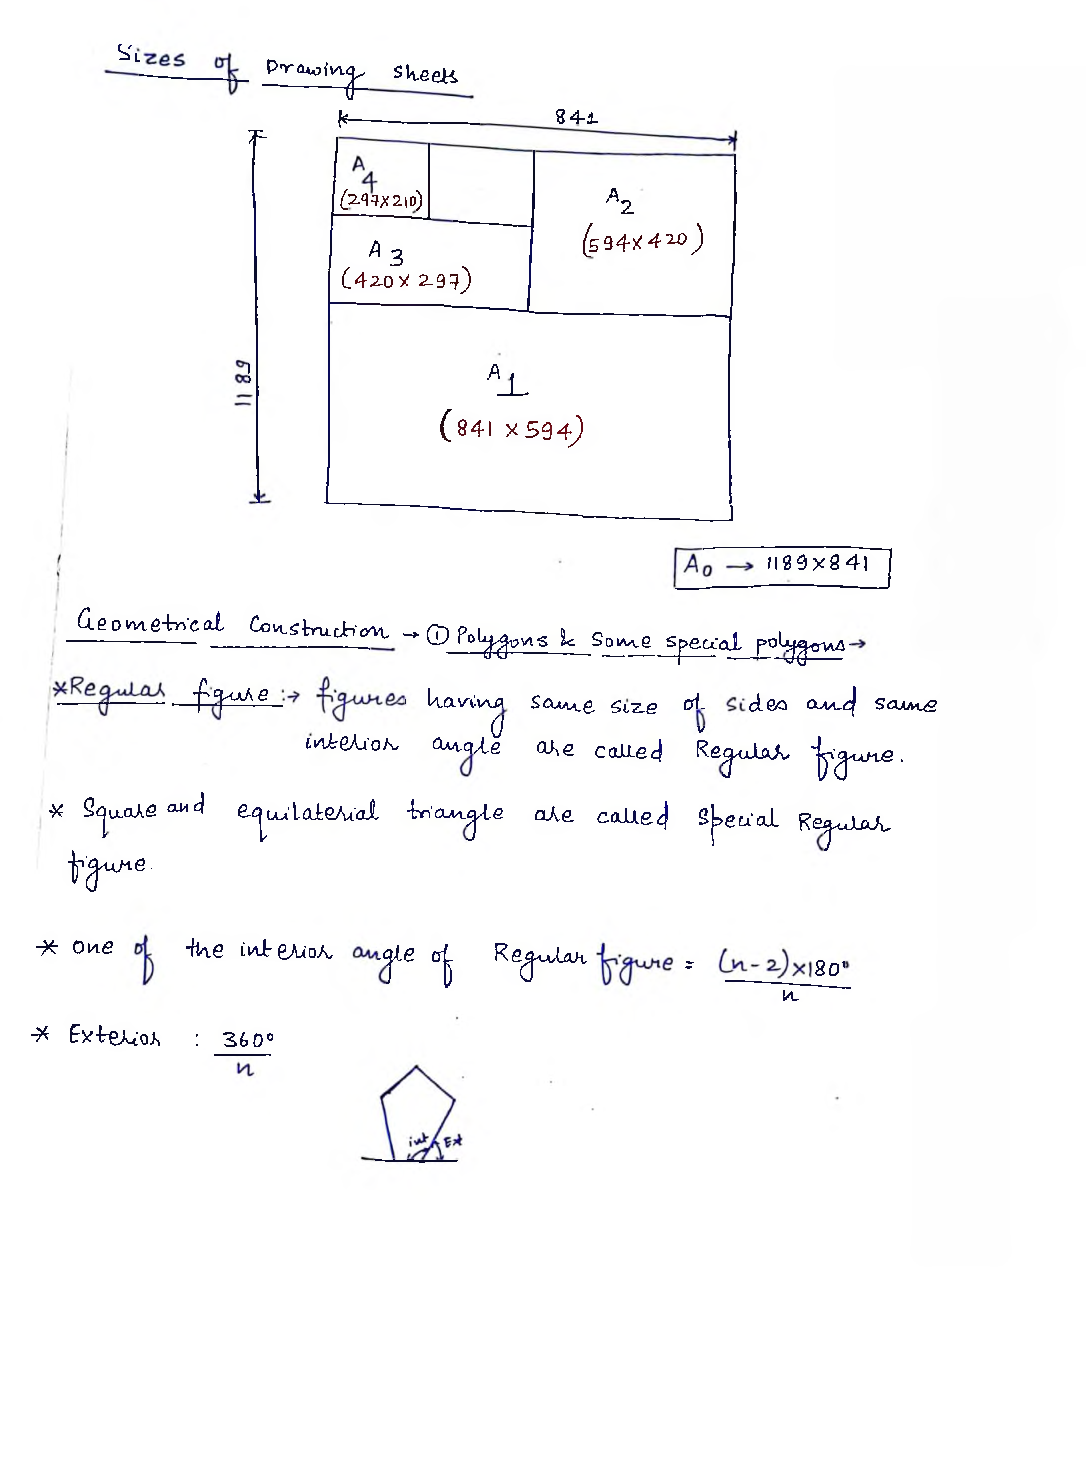 Sizes of Drawing sheets
841
A4
(297X210)
A2
(594X420)
A3
(420X 297)
1189
A1
(841 X 594)
A0 → 1189X841
Geometrical Construction → ① Polygons & Some special polygons →
*Regular figure :→ figures having same size of sides and same
interior angle are called Regular figure.
* Square and equilaterial triangle are called special Regular
figure.
* one of the interior angle of Regular figure = (n-2)×180°
n
* Exterior : 360°
n
int Ext